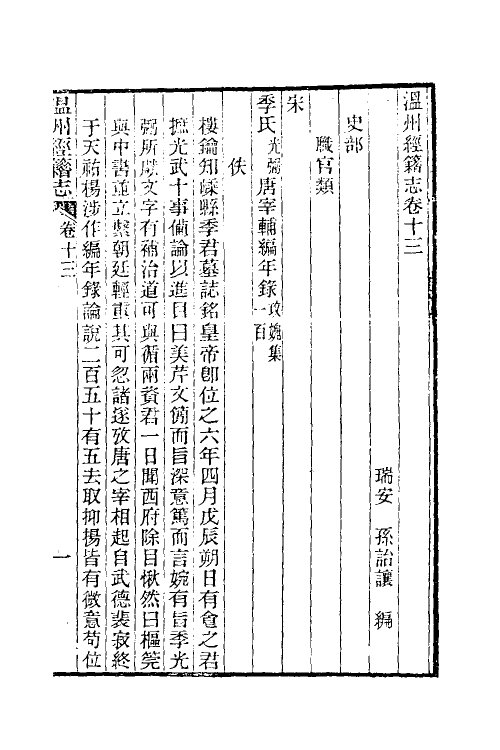 溫州經籍志卷十三
瑞安　孫詒讓　編
史部
職官類
宋
季氏光弼唐宰輔編年錄攻媿集一百
佚
樓鑰知嵊縣季君墓誌銘皇帝卽位之六年四月戊辰朔日有食之君
摭光武十事僃論以進目曰美芹文簡而旨深意篤而言婉有旨季光
弼所獻文字有補治道可與循兩資君一日聞西府除目愀然曰樞筦
與中書並立繫朝廷輕重其可忽諸遂攷唐之宰相起自武德裴寂終
于天祐楊涉作編年錄論說二百五十有五去取抑揚皆有微意苟位
溫州經籍志　卷十三　一